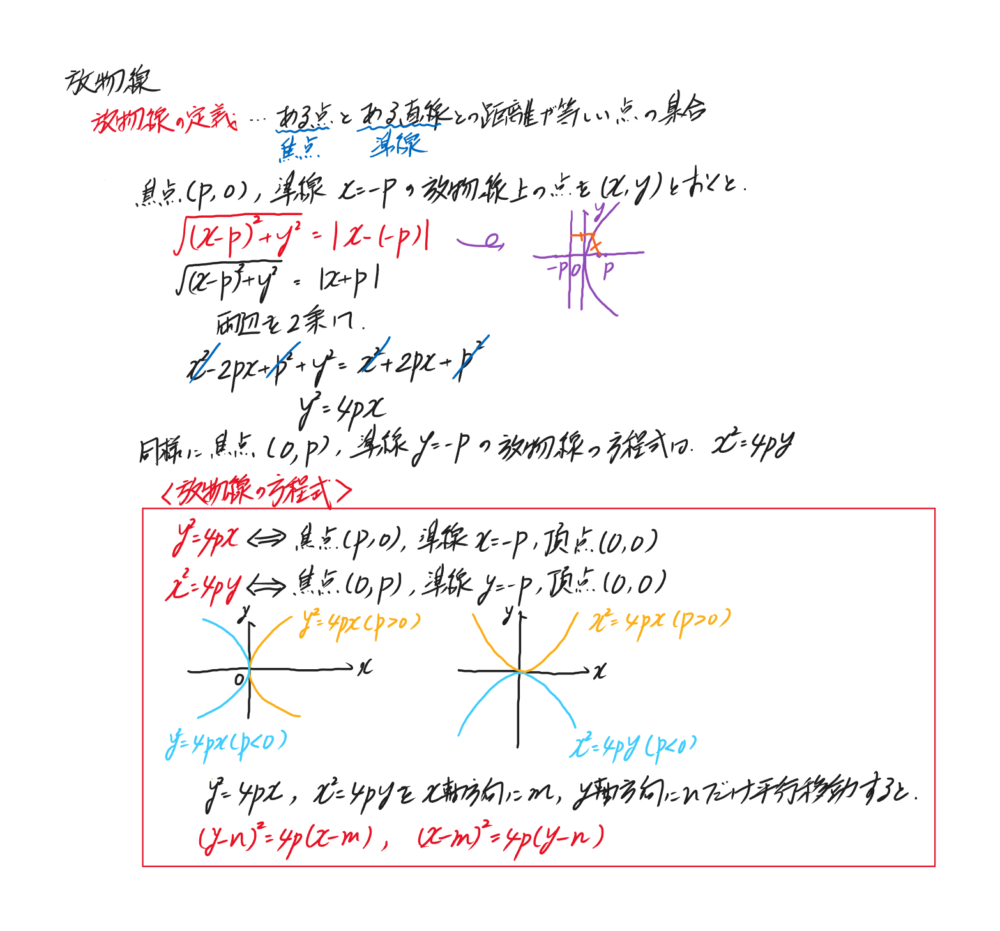 放物線
放物線の定義 … ある点とある直線との距離が等しい点の集合
焦点 準線
焦点(p,0), 準線 x=-p の放物線上の点を(x,y)とおくと.
√((x-p)²+y²) = |x-(-p)|
y
-p 0 p
√((x-p)²+y²) = |x+p|
両辺を2乗して.
x²-2px+p²+y²=x²+2px+p²
y²=4px
同様に焦点(0,p), 準線 y=-p の放物線の方程式は. x²=4py
<放物線の方程式>
y²=4px ⇔ 焦点(p,0), 準線 x=-p, 頂点(0,0)
x²=4py ⇔ 焦点(0,p), 準線 y=-p, 頂点(0,0)
y y²=4px(p>0) y x²=4px(p>0)
x x
0
y²=4px(p<0) x²=4py(p<0)
y²=4px, x²=4pyをx軸方向にm, y軸方向にnだけ平行移動すると.
(y-n)²=4p(x-m), (x-m)²=4p(y-n)